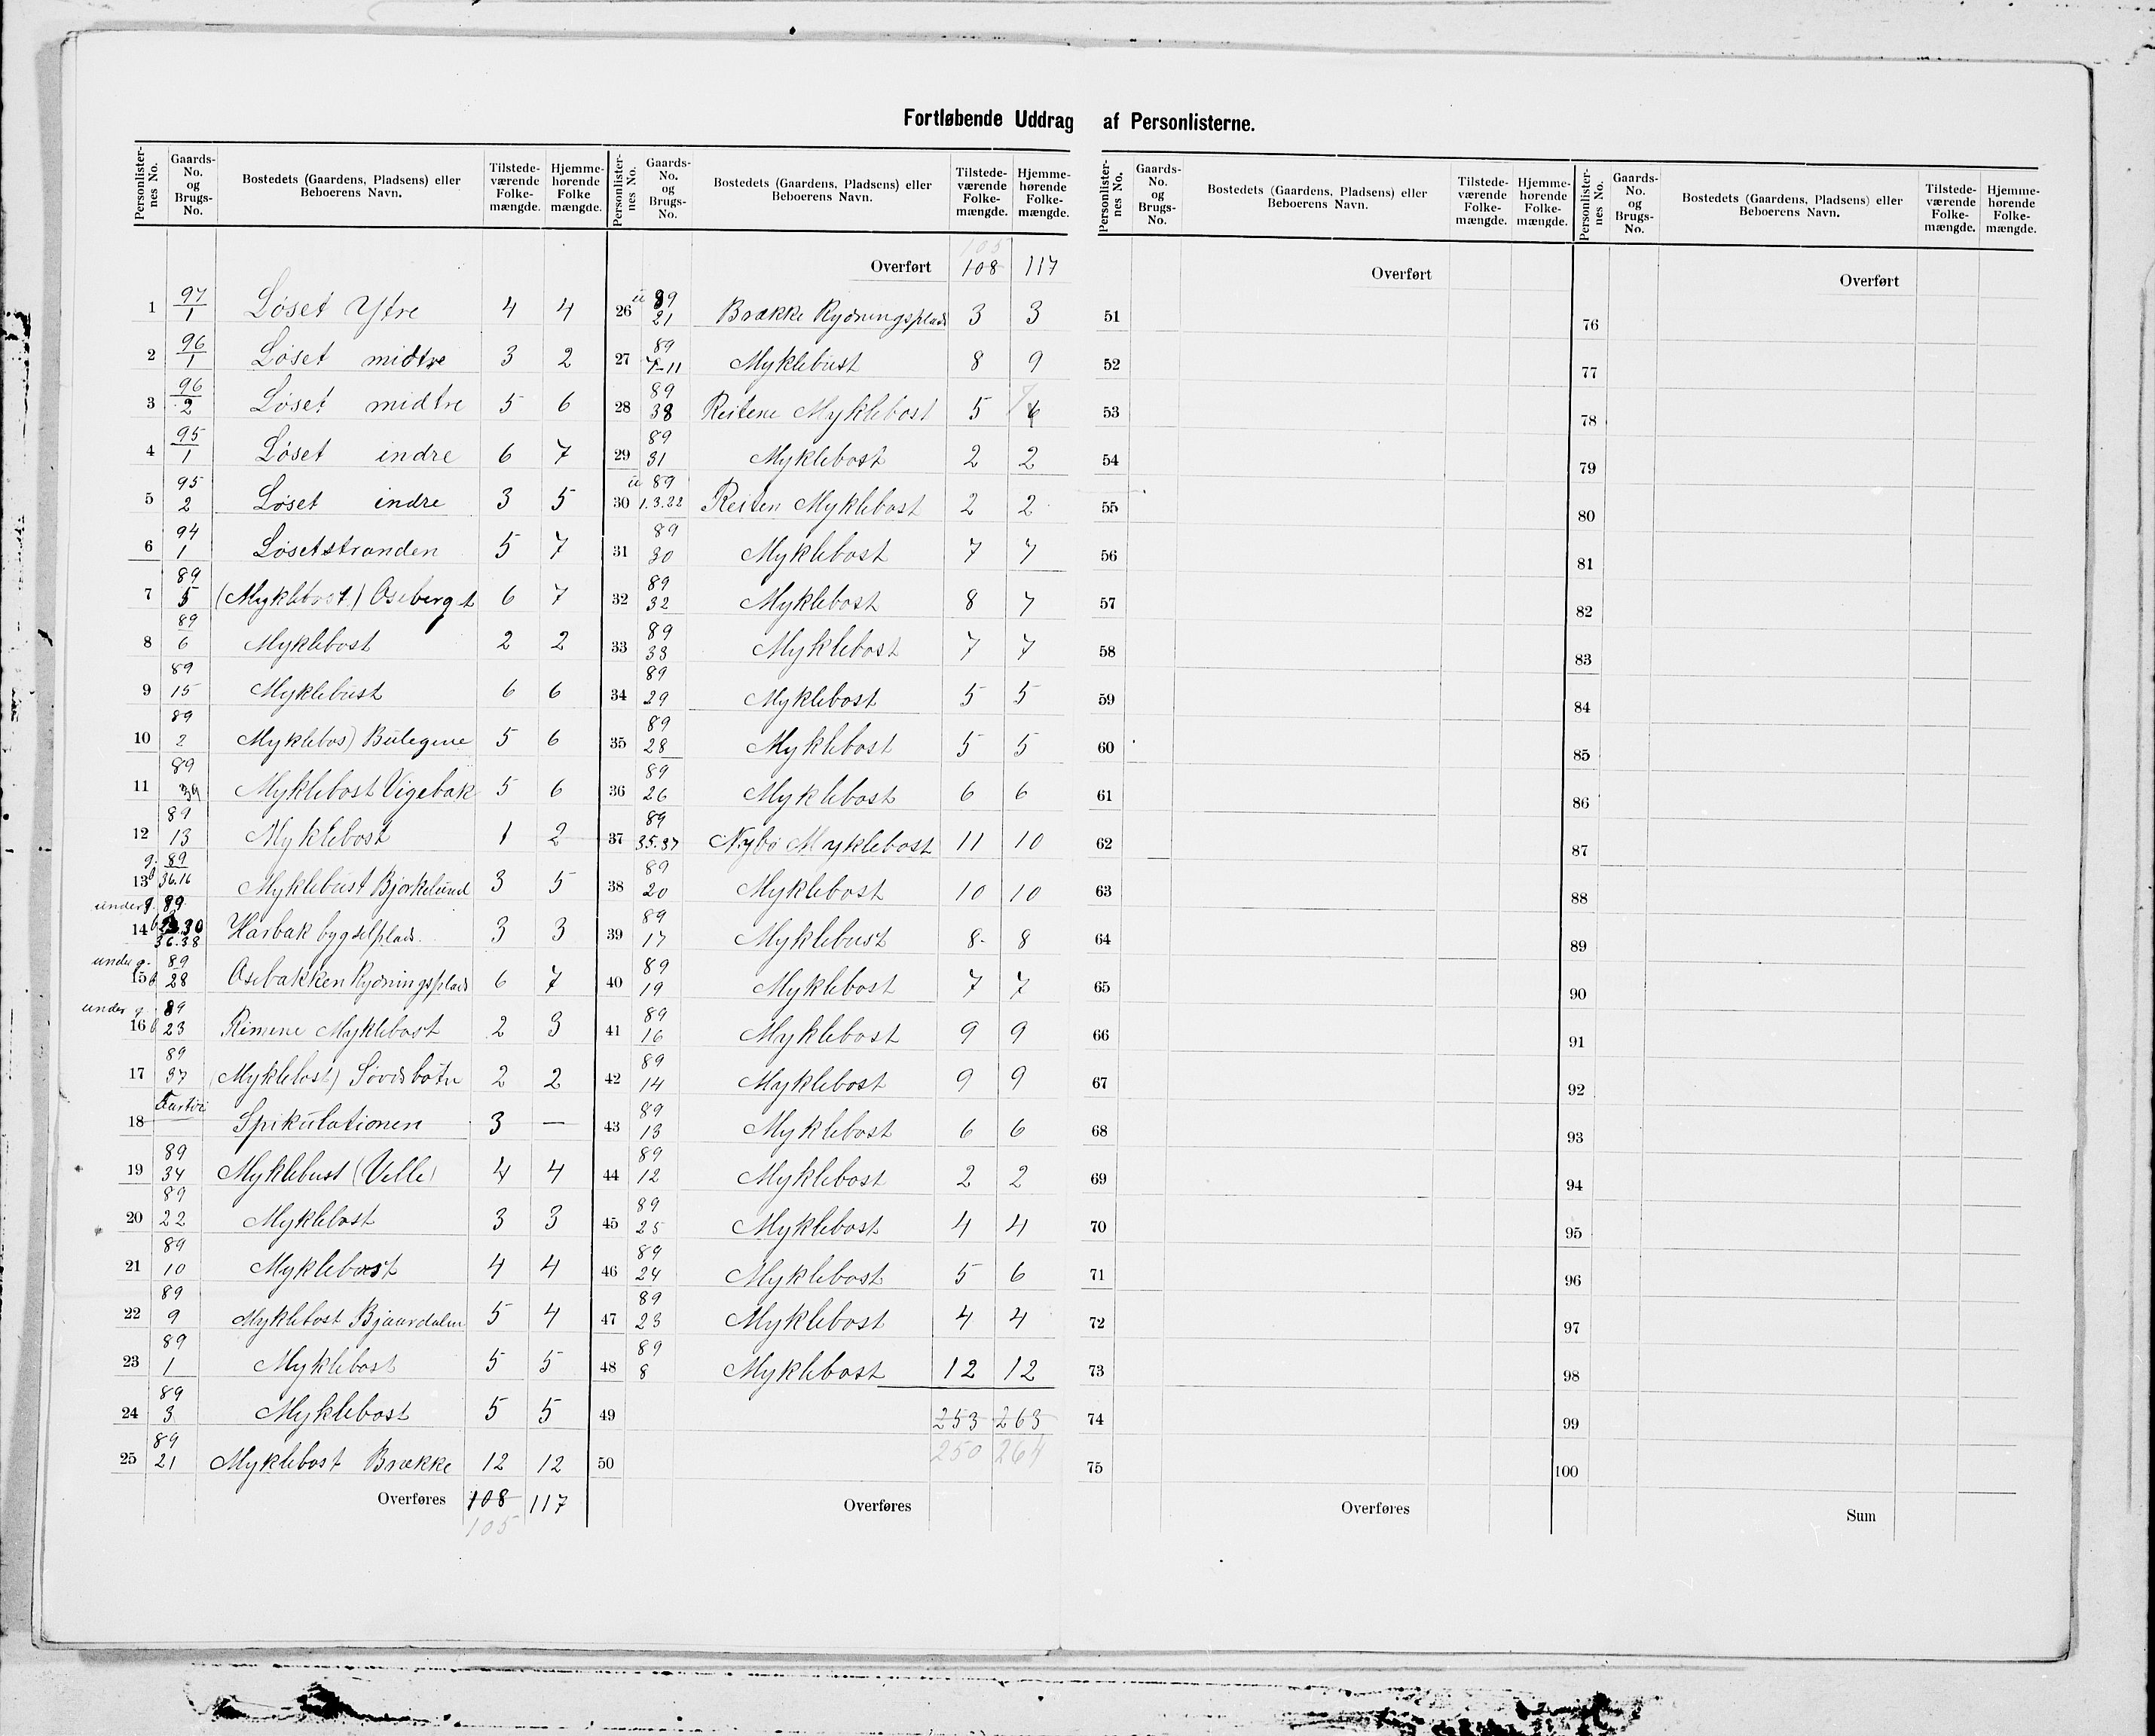 Fortløbende Uddrag af Personlisterne.
Personlister-nes No. Gaards-No. og Brugs-No. Bostedets (Gaardens, Pladsens) eller Beboerens Navn. Tilstede-værende Folke-mængde. Hjemme-hørende Folke mængde.
1 97/1 Løset Ytre 4 4
2 96/1 Løset midtre 3 2
3 96/2 Løset midtre 5 6
4 95/1 Løset indre 6 7
5 95/2 Løset indre 3 5
6 94/1 Løsetstranden 5 7
7 89/5 (Myklebost) Oseberget 6 7
8 89/6 Myklebost 2 2
9 89/15 Myklebust 6 6
10 89/2 Myklebos) 5 6
11 89/39 Myklebost Vigebak 5 6
12 89/13 Myklebost 1 2
13 g. 89 b 36.16 Myklebust Bjørkelund 3 5
14 under g. 89 30 36.38 Harbak bygselplads. 3 3
15 under g. 89 b 28 Osebakken Rydningsplads 6 7
16 under g. 89 b 23 Rimene Myklebost 2 3
17 89/37 (Myklebost) 2 2
18 Spikulationen 3 —
19 89/34 Myklebust (Velle) 4 4
20 89/22 Myklebost 3 3
21 89/10 Myklebost 4 4
22 89/9 Myklebost Bjaardalen 5 4
23 89/1 Myklebost 5 5
24 89/3 Myklebost 5 5
25 89/21 Myklebost Brække 12 12
Overføres 108 117
105
Personlister-nes No. Gaards-No. og Brugs-No. Bostedets (Gaardens, Pladsens) eller Beboerens Navn. Tilstede-værende Folke-mængde. Hjemme-hørende Folke-mængde.
105
Overført 108 117
26 u 89/21 Brække Rydningsplads 3 3
27 89/7-11 Myklebust 8 9
28 89/38 Reitene Myklebost 5 6
29 89/31 Myklebost 2 2
30 u 89/1.3.22 Reiten Myklebost 2 2
31 89/30 Myklebost 7 7
32 89/32 Myklebost 8 7
33 89/33 Myklebost 7 7
34 89/29 Myklebost 5 5
35 89/28 Myklebost 5 5
36 89/26 Myklebost 6 6
37 89/35.37 Nybø Myklebost 11 10
38 89/20 Myklebost 10 10
39 89/17 Myklebust 8 8
40 89/19 Myklebost 7 7
41 89/16 Myklebost 9 9
42 89/14 Myklebost 9 9
43 89/13 Myklebost 6 6
44 89/12 Myklebost 2 2
45 89/25 Myklebost 4 4
46 89/24 Myklebost 5 6
47 89/23 Myklebost 4 4
48 89/8 Myklebost 12 12
49 253 263
50 250 264
Overføres
Personlister-nes No. Gaards-No. og Brugs-No. Bostedets (Gaardens, Pladsens) eller Beboerens Navn. Tilstede-værende Folke-mængde. Hjemme-hørende Folke-mængde.
Overført
51
52
53
54
55
56
57
58
59
60
61
62
63
64
65
66
67
68
69
70
71
72
73
74
75
Overføres
Personlister-nes No. Gaards-No. og Brugs-No. Bostedets (Gaardens, Pladsens) eller Beboerens Navn. Tilstede-værende Folke-mængde. Hjemme-hørende Folke-mængde.
Overført
76
77
78
79
80
81
82
83
84
85
86
87
88
89
90
91
92
93
94
95
96
97
98
99
100
Sum